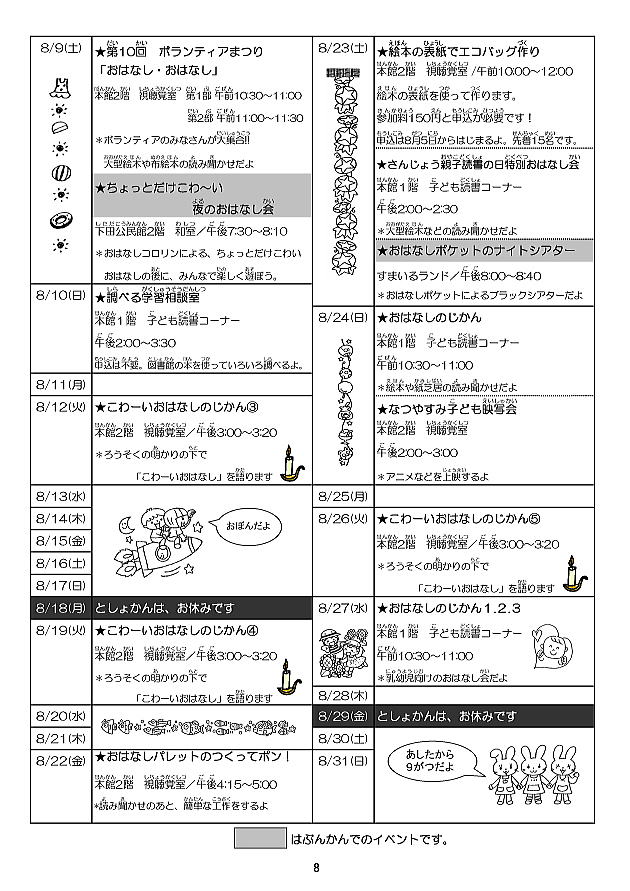 8/9(土)
★第10回　ボランティアまつり
「おはなし・おはなし」
本館2階　視聴覚室　第1部 午前10:30～11:00
第2部 午前11:00～11:30
＊ボランティアのみなさんが大集合!!
大型絵本や布絵本の読み聞かせだよ
★ちょっとだけこわ～い
夜のおはなし会
下田公民館2階　和室／午後7:30～8:10
＊おはなしコロリンによる、ちょっとだけこわい
おはなしの後に、みんなで楽しく遊ぼう。
8/10(日)
★調べる学習相談室
本館1階　子ども読書コーナー
午後2:00～3:30
申込は不要。図書館の本を使っていろいろ調べるよ。
8/11(月)
8/12(火)
★こわーいおはなしのじかん③
本館2階　視聴覚室／午後3:00～3:20
＊ろうそくの明かりの下で
「こわーいおはなし」を語ります
8/13(水)
8/14(木)
8/15(金)
8/16(土)
8/17(日)
おぼんだよ
8/18(月)
としょかんは、お休みです
8/19(火)
★こわーいおはなしのじかん④
本館2階　視聴覚室／午後3:00～3:20
＊ろうそくの明かりの下で
「こわーいおはなし」を語ります
8/20(水)
8/21(木)
8/22(金)
★おはなしパレットのつくってポン！
本館2階　視聴覚室／午後4:15～5:00
*読み聞かせのあと、簡単な工作をするよ
8/23(土)
★絵本の表紙でエコバッグ作り
本館2階　視聴覚室 /午前10:00～12:00
絵本の表紙を使って作ります。
参加料150円と申込が必要です！
申込は8月5日からはじまるよ。先着15名です。
★さんじょう親子読書の日特別おはなし会
本館1階　子ども読書コーナー
午後2:00～2:30
＊大型絵本などの読み聞かせだよ
★おはなしポケットのナイトシアター
すまいるランド／午後8:00～8:40
＊おはなしポケットによるブラックシアターだよ
8/24(日)
★おはなしのじかん
本館1階　子ども読書コーナー
午前10:30～11:00
＊絵本や紙芝居の読み聞かせだよ
★なつやすみ子ども映写会
本館2階　視聴覚室
午後2:00～3:00
＊アニメなどを上映するよ
8/25(月)
8/26(火)
★こわーいおはなしのじかん⑤
本館2階　視聴覚室／午後3:00～3:20
＊ろうそくの明かりの下で
「こわーいおはなし」を語ります
8/27(水)
★おはなしのじかん1.2.3
本館1階　子ども読書コーナー
午前10:30～11:00
＊乳幼児向けのおはなし会だよ
8/28(木)
8/29(金)
としょかんは、お休みです
8/30(土)
8/31(日)
あしたから
9がつだよ
はぶんかんでのイベントです。
8